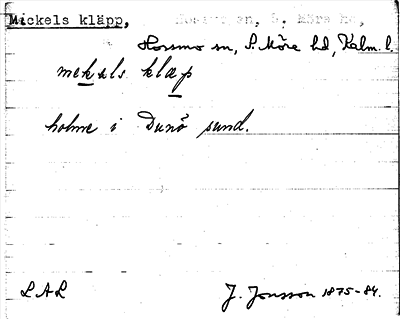 Mickels kläpp,
Hossmo sn, S. Möre hd, Kalm. l.
mekals klæp
holme i Dunö sund.
LAL J. Jonsson 1875-84.